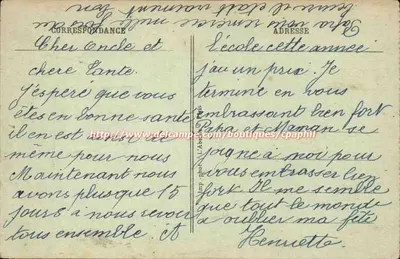 CORRESPONDANCE
Cher Oncle et
chère Tante.
j'espère que vous
êtes en bonne santé
il en est ainsi de
même pour nous
Maintenant nous
avons plus que 15
jours à nous revoir
tous ensemble. A
ADRESSE
l'école cette année
j'ai un prix. Je
termine en vous
embrassant bien fort
Papa et Maman se
joigne à moi pour
vous embrasser bien
fort. Il me semble
que tout le monde
a oublier ma fête
Henriette
Papa vous remercie mille fois du
beurre il était vraiment
bon
http://www.delcampe.com/boutiques/cpaphil